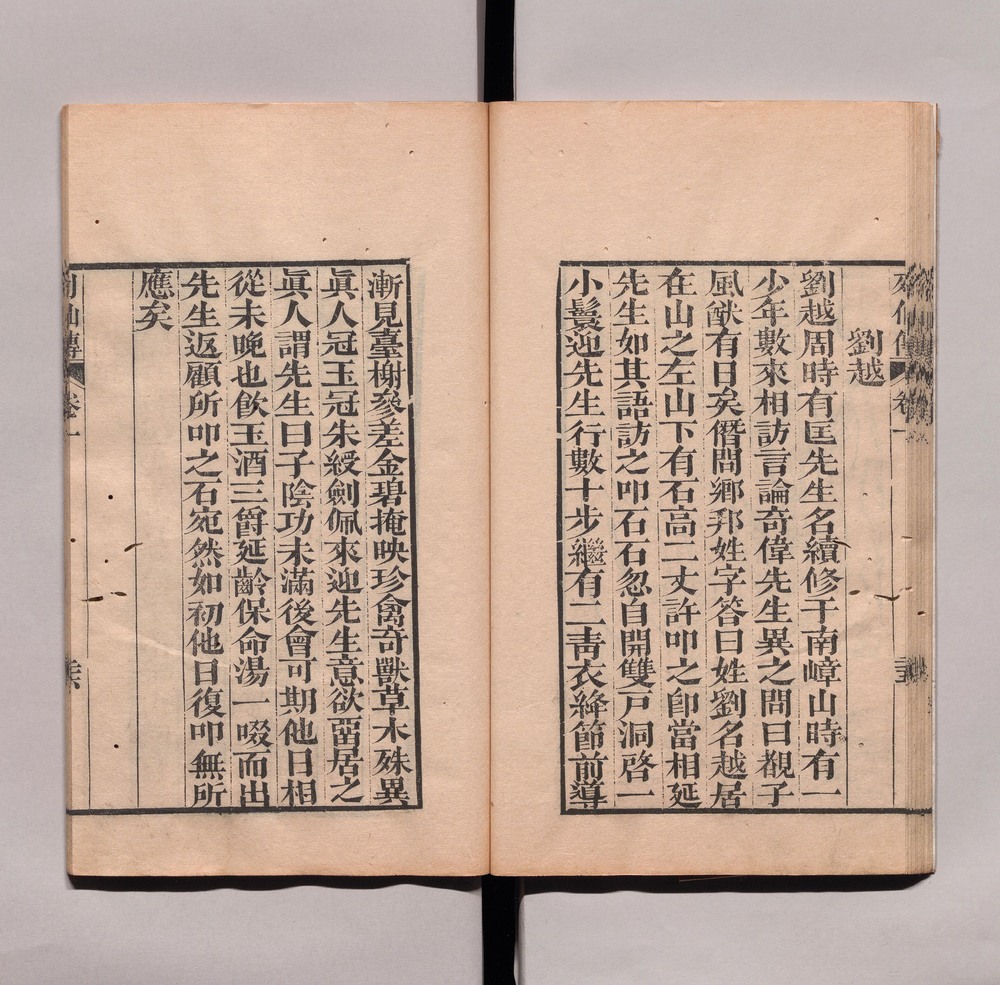 列仙傳 卷一
劉越
劉越周時有匡先生名續修于南嶂山時有一
少年數來相訪言論奇偉先生異之問曰覩子
風猷有日矣僭問鄉邦姓字答曰姓劉名越居
在山之左山下有石高二丈許叩之卽當相延
先生如其語訪之叩石石忽自開雙戸洞啓一
小鬟迎先生行數十步繼有二靑衣絳節前導
漸見臺榭參差金碧掩映珍禽奇獸草木殊異
眞人冠玉冠朱綬劍佩來迎先生意欲畱居之
眞人謂先生曰子陰功未滿後會可期他日相
從未晚也飮玉酒三爵延齡保命湯一啜而出
先生返顧所叩之石宛然如初他日復叩無所
應矣
列仙傳 卷一